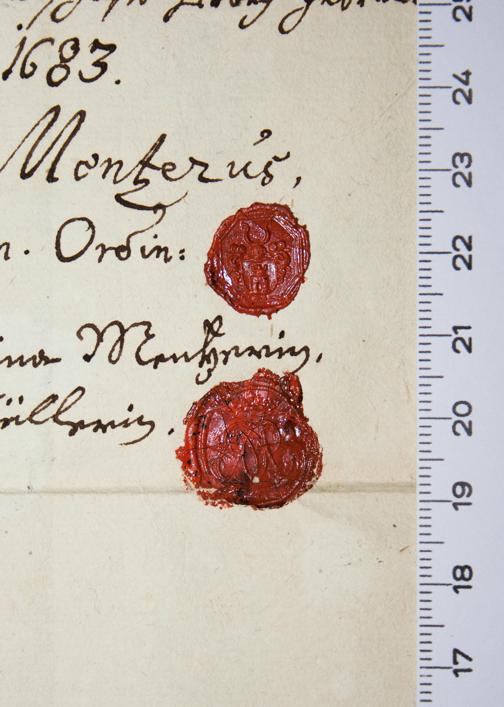 1683.
Mentzerus,
n. Ordin:
ina Mentzerin,
üllerin.
25
24
23
22
21
20
19
18
17